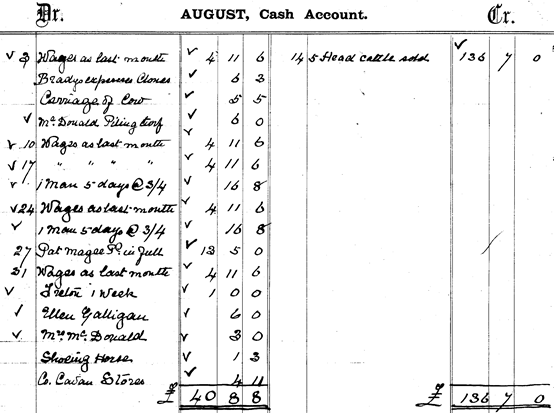 Dr. AUGUST, Cash Account. Cr.
3 Wages as last month 4 11 6 14 5 Head cattle sold 136 7 0
Bradys expenses Clones 6 3
Carriage of Cow 5 5
McDonald 6 0
10 Wages as last month 4 11 6
17 " " " " 4 11 6
1 Man 5 days @ 3/4 16 8
24 Wages as last month 4 11 6
1 Man 5 days @ 3/4 16 8
27 Pat Magee in full 13 5 0
31 Wages as last month 4 11 6
1 Week 1 0 0
Ellen Galligan 6 0
Mrs McDonald 3 0
Shoeing Horses 1 3
Co. Cavan Stores 4 11
£ 40 8 8 £ 136 7 0